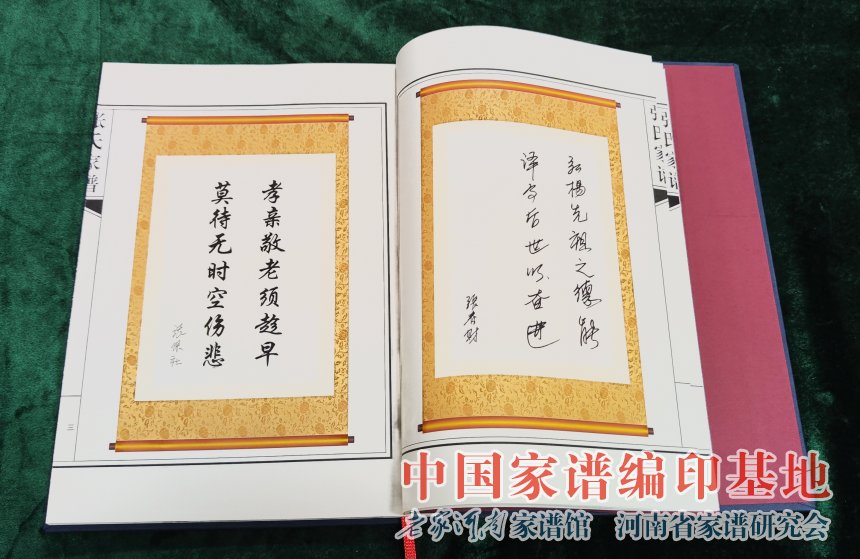 张氏家谱
孝亲敬老须趁早
莫待无时空伤悲
三
张氏家谱
弘揚先祖之德能
泽 后世以奋进
中国家谱编印基地
老家河南家谱馆 河南省家谱研究会